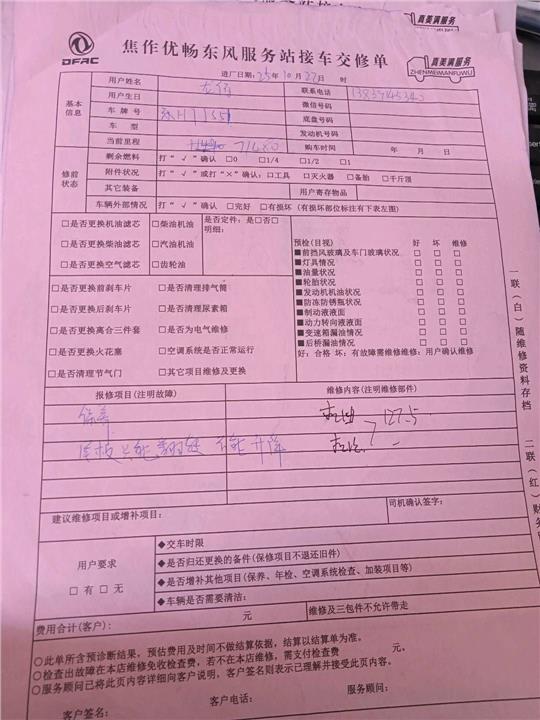 真美满服务
DFAC
焦作优畅东风服务站接车交修单
真美满服务
ZHENMEIMANFUWU
进厂日期：25年10月27日 时
基本信息
用户姓名
联系电话
用户生日
微信号码
车牌号
底盘号码
车型
发动机号码
当前里程
购车时间 年 月 日
修前状态
剩余燃料 打“√”确认 □0 □1/4 □1/2 □1
附件状况 打“√”或打“×”确认：□工具 □灭火器 □备胎 □千斤顶
其它装备 用户寄存物品
车辆外部情况 打“√”确认 □完好 □有损坏（有损坏部位标注有下表左图）
□是否更换机油滤芯 □柴油机油 是否定件：是□否□
明细：
□是否更换柴油滤芯 □汽油机油
□是否更换空气滤芯 □齿轮油
□是否更换前刹车片 □是否清理排气筒
□是否更换后刹车片 □是否清理尿素箱
□是否更换离合三件套 □是否为电气维修
□是否更换火花塞 □空调系统是否正常运行
□是否清理节气门 □其它项目维修及更换
预检（目视） 好 坏 维修
■前挡风玻璃及车门玻璃状况 □ □ □
■灯具情况 □ □ □
■油量状况 □ □ □
■轮胎状况 □ □ □
■发动机机油状况 □ □ □
■防冻防锈瓶状况 □ □ □
■制动液液面 □ □ □
■动力转向液液面 □ □ □
■变速箱漏油情况 □ □ □
■后桥漏油情况 □ □ □
好：合格 坏：有故障需维修维修：用户确认维修
报修项目（注明故障） 维修内容（注明维修部件）
保养
不能升降
建议维修项目或增补项目：
司机确认签字：
用户要求
□有 □无
◆交车时限
◆是否归还更换的备件（保修项目不退还旧件）
◆是否增补其他项目（保养、年检、空调系统检查、加装项目等）
◆车辆是否需要清洁：
费用合计（客户）： 元 维修及三包件不允许带走
○此单所含预诊断结果，预估费用及时间不做结算依据，结算以结算单为准。
○检查出故障在本店维修免收检查费，若不在本店维修，需支付检查费 元。
○服务顾问已将此页内容详细向客户说明，客户签名则表示已理解并接受此页内容。
客户签名： 客户电话： 服务顾问：
一联（白）随维修资料存档
二联（红）